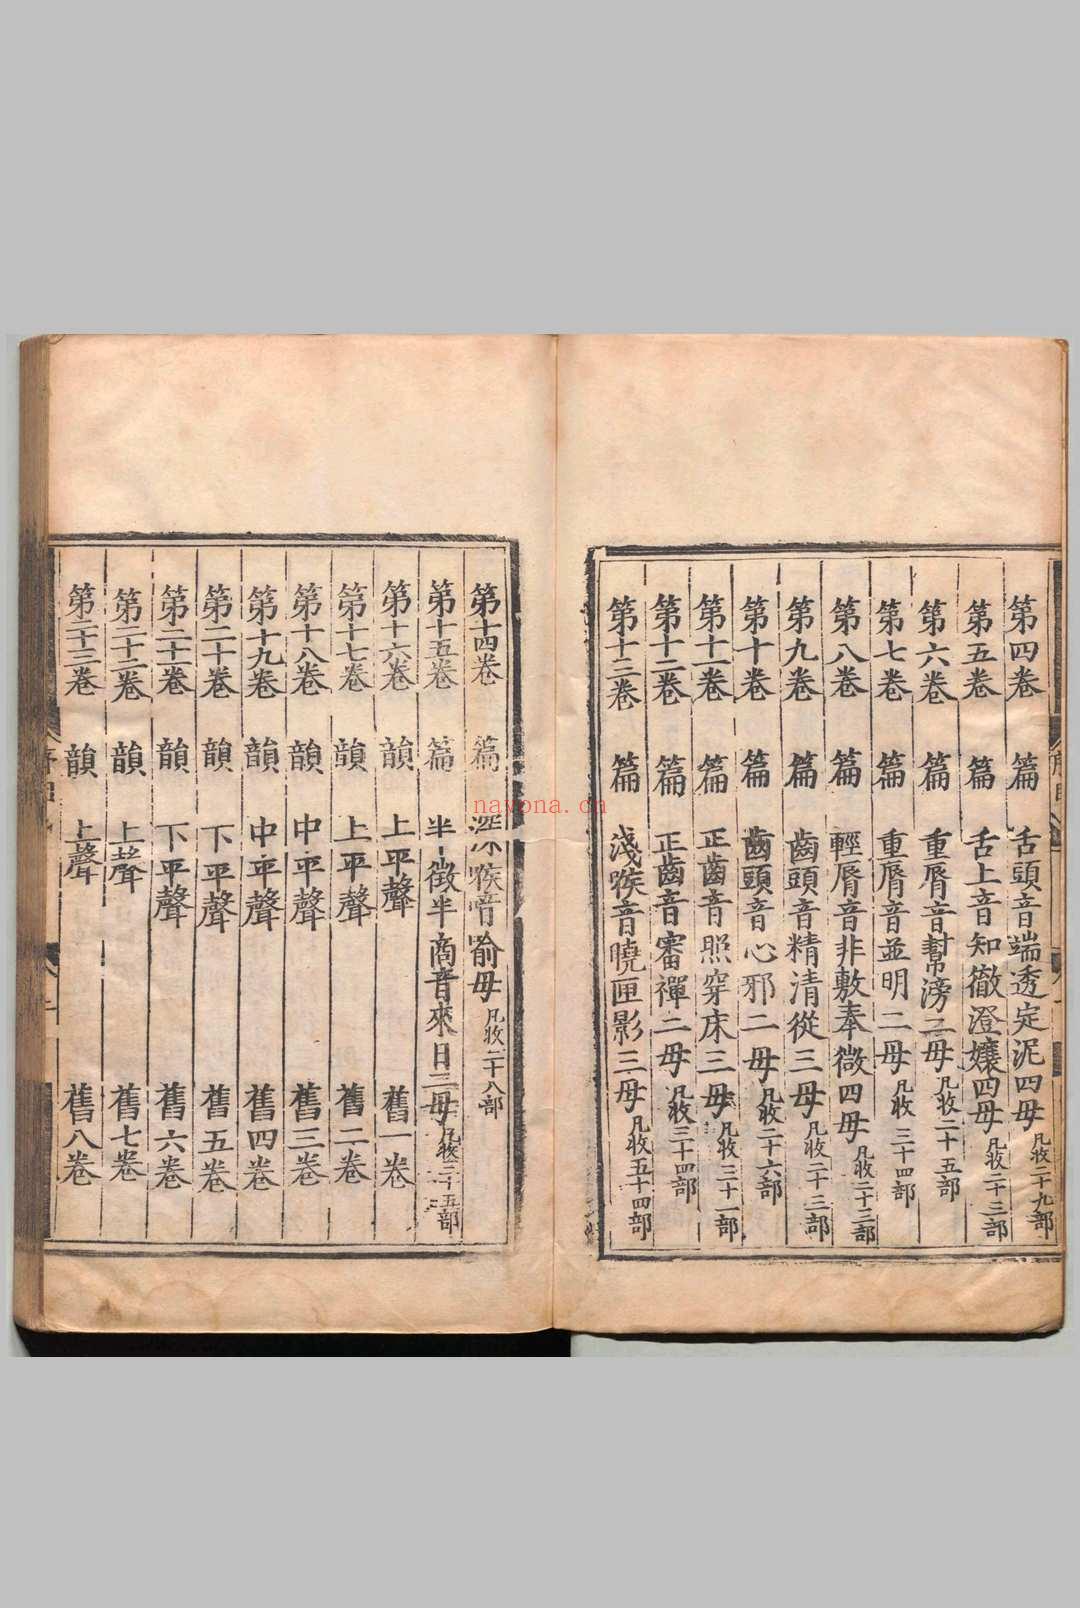 第四卷 篇 舌頭音端透定泥四母 凡收二十九部
第五卷 篇 舌上音知徹澄孃四母 凡收二十三部
第六卷 篇 重脣音幫滂二母 凡收二十五部
第七卷 篇 重脣音並明二母 凡收三十四部
第八卷 篇 輕脣音非敷奉微四母 凡收二十三部
第九卷 篇 齒頭音精清從三母 凡收二十三部
第十卷 篇 齒頭音心邪二母 凡收二十六部
第十一卷 篇 正齒音照穿床三母 凡收三十一部
第十二卷 篇 正齒音審禪二母 凡收三十四部
第十三卷 篇 淺喉音曉匣影三母 凡收五十四部
第十四卷 篇 深喉音喻母 凡收二十八部
第十五卷 篇 半徵半商音來日二母 凡收三十五部
第十六卷 韻 上平聲 舊一卷
第十七卷 韻 上平聲 舊二卷
第十八卷 韻 中平聲 舊三卷
第十九卷 韻 中平聲 舊四卷
第二十卷 韻 下平聲 舊五卷
第二十一卷 韻 下平聲 舊六卷
第二十二卷 韻 上聲 舊七卷
第二十三卷 韻 上聲 舊八卷
nayona.cn